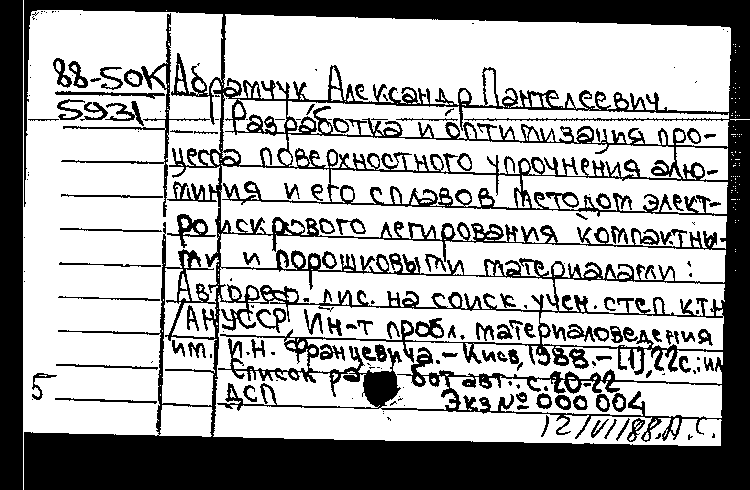 88-50К Абрамчук Александр Пантелеевич.
5931 Разработка и оптимизация про-
цесса поверхностного упрочнения алю-
миния и его сплавов методом элект-
роискрового легирования компактны-
ми и порошковыми материалами:
Автореф. дис. на соиск. учен. степ. к.т.н
/АН УССР, Ин-т пробл. материаловедения
им. И.Н. Францевича.-Киев, 1988.-[1], 22с.: ил
Список работ авт.: с. 20-22
5 ДСП Экз № 000 004
12/VI/88.А.С.